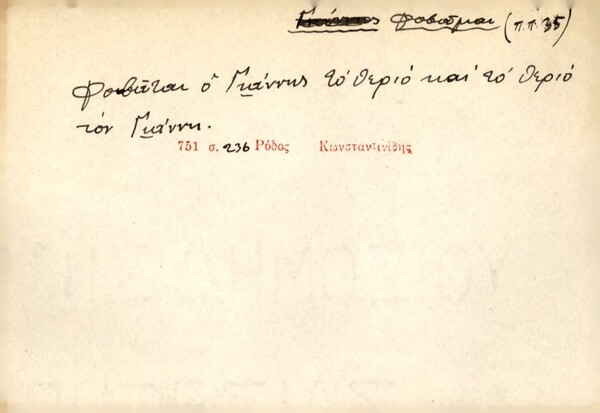 Γιάννης φοβοῦμαι (π.π. 35)
Φοβᾶται ὁ Γιάννης τό θεριό καί τό θεριό
τόν Γιάννη.
751 σ. 236 Ρόδος Κωνσταντινίδης